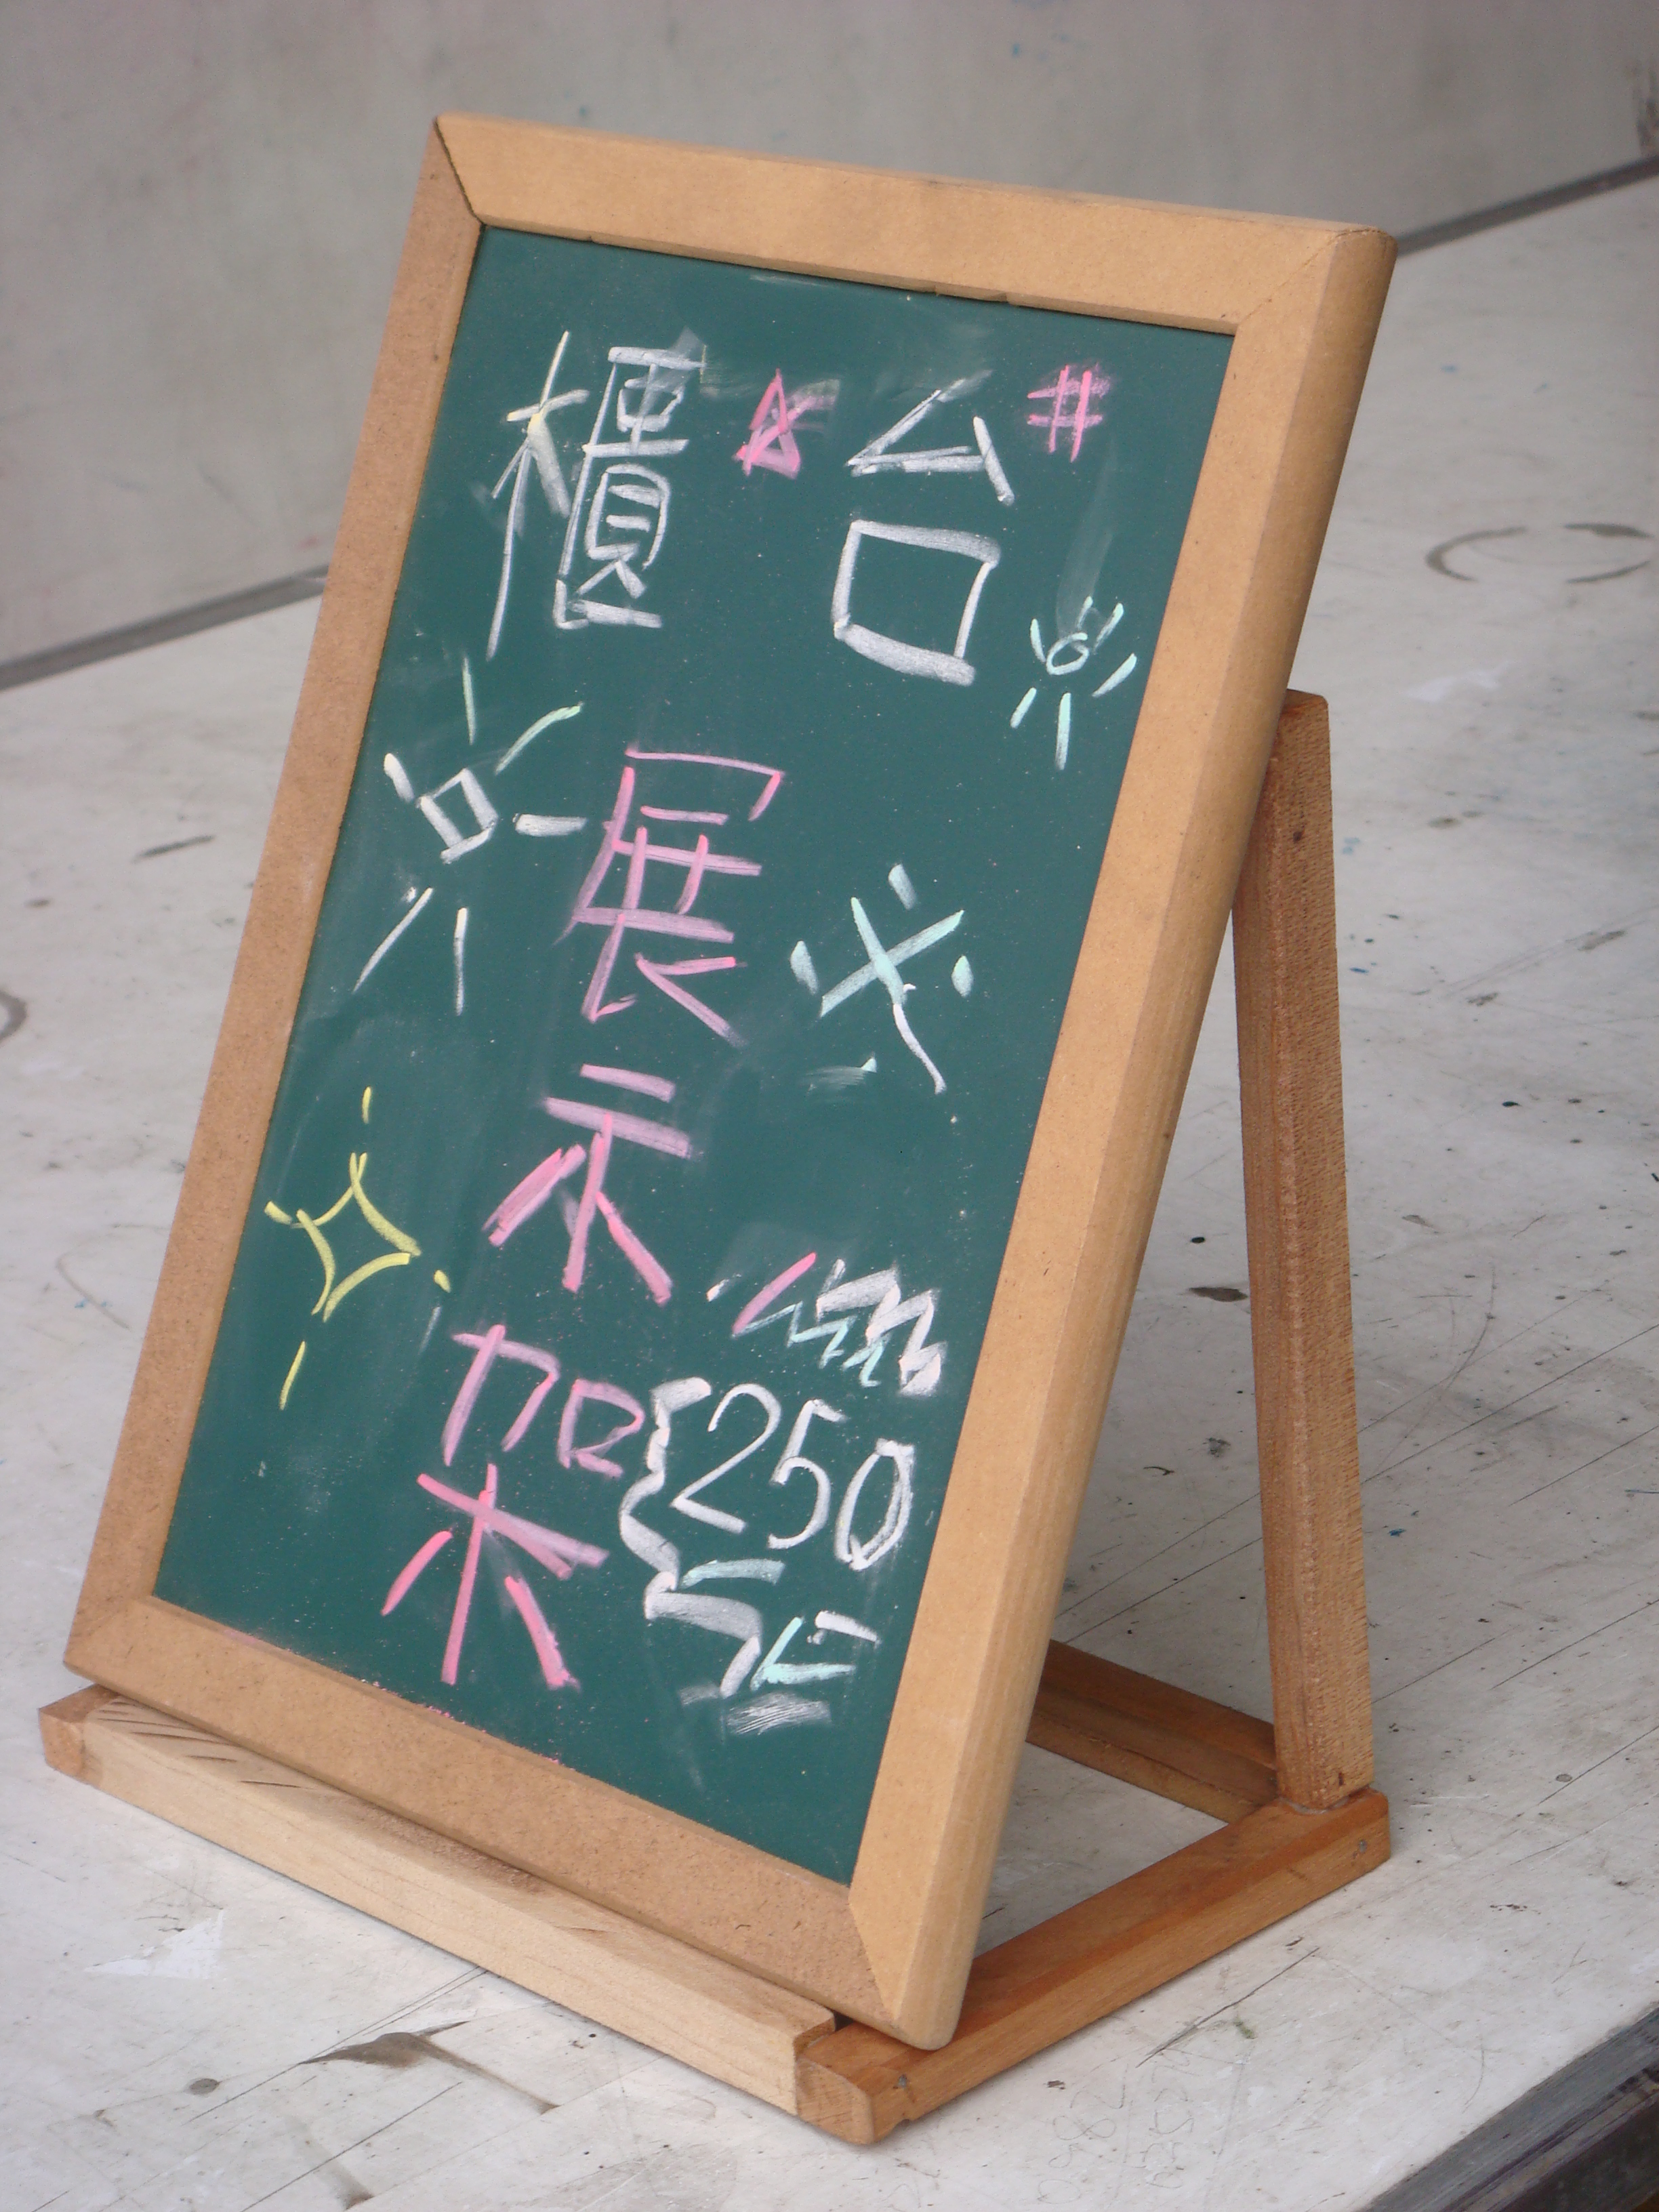 櫃台
展
示
架
250